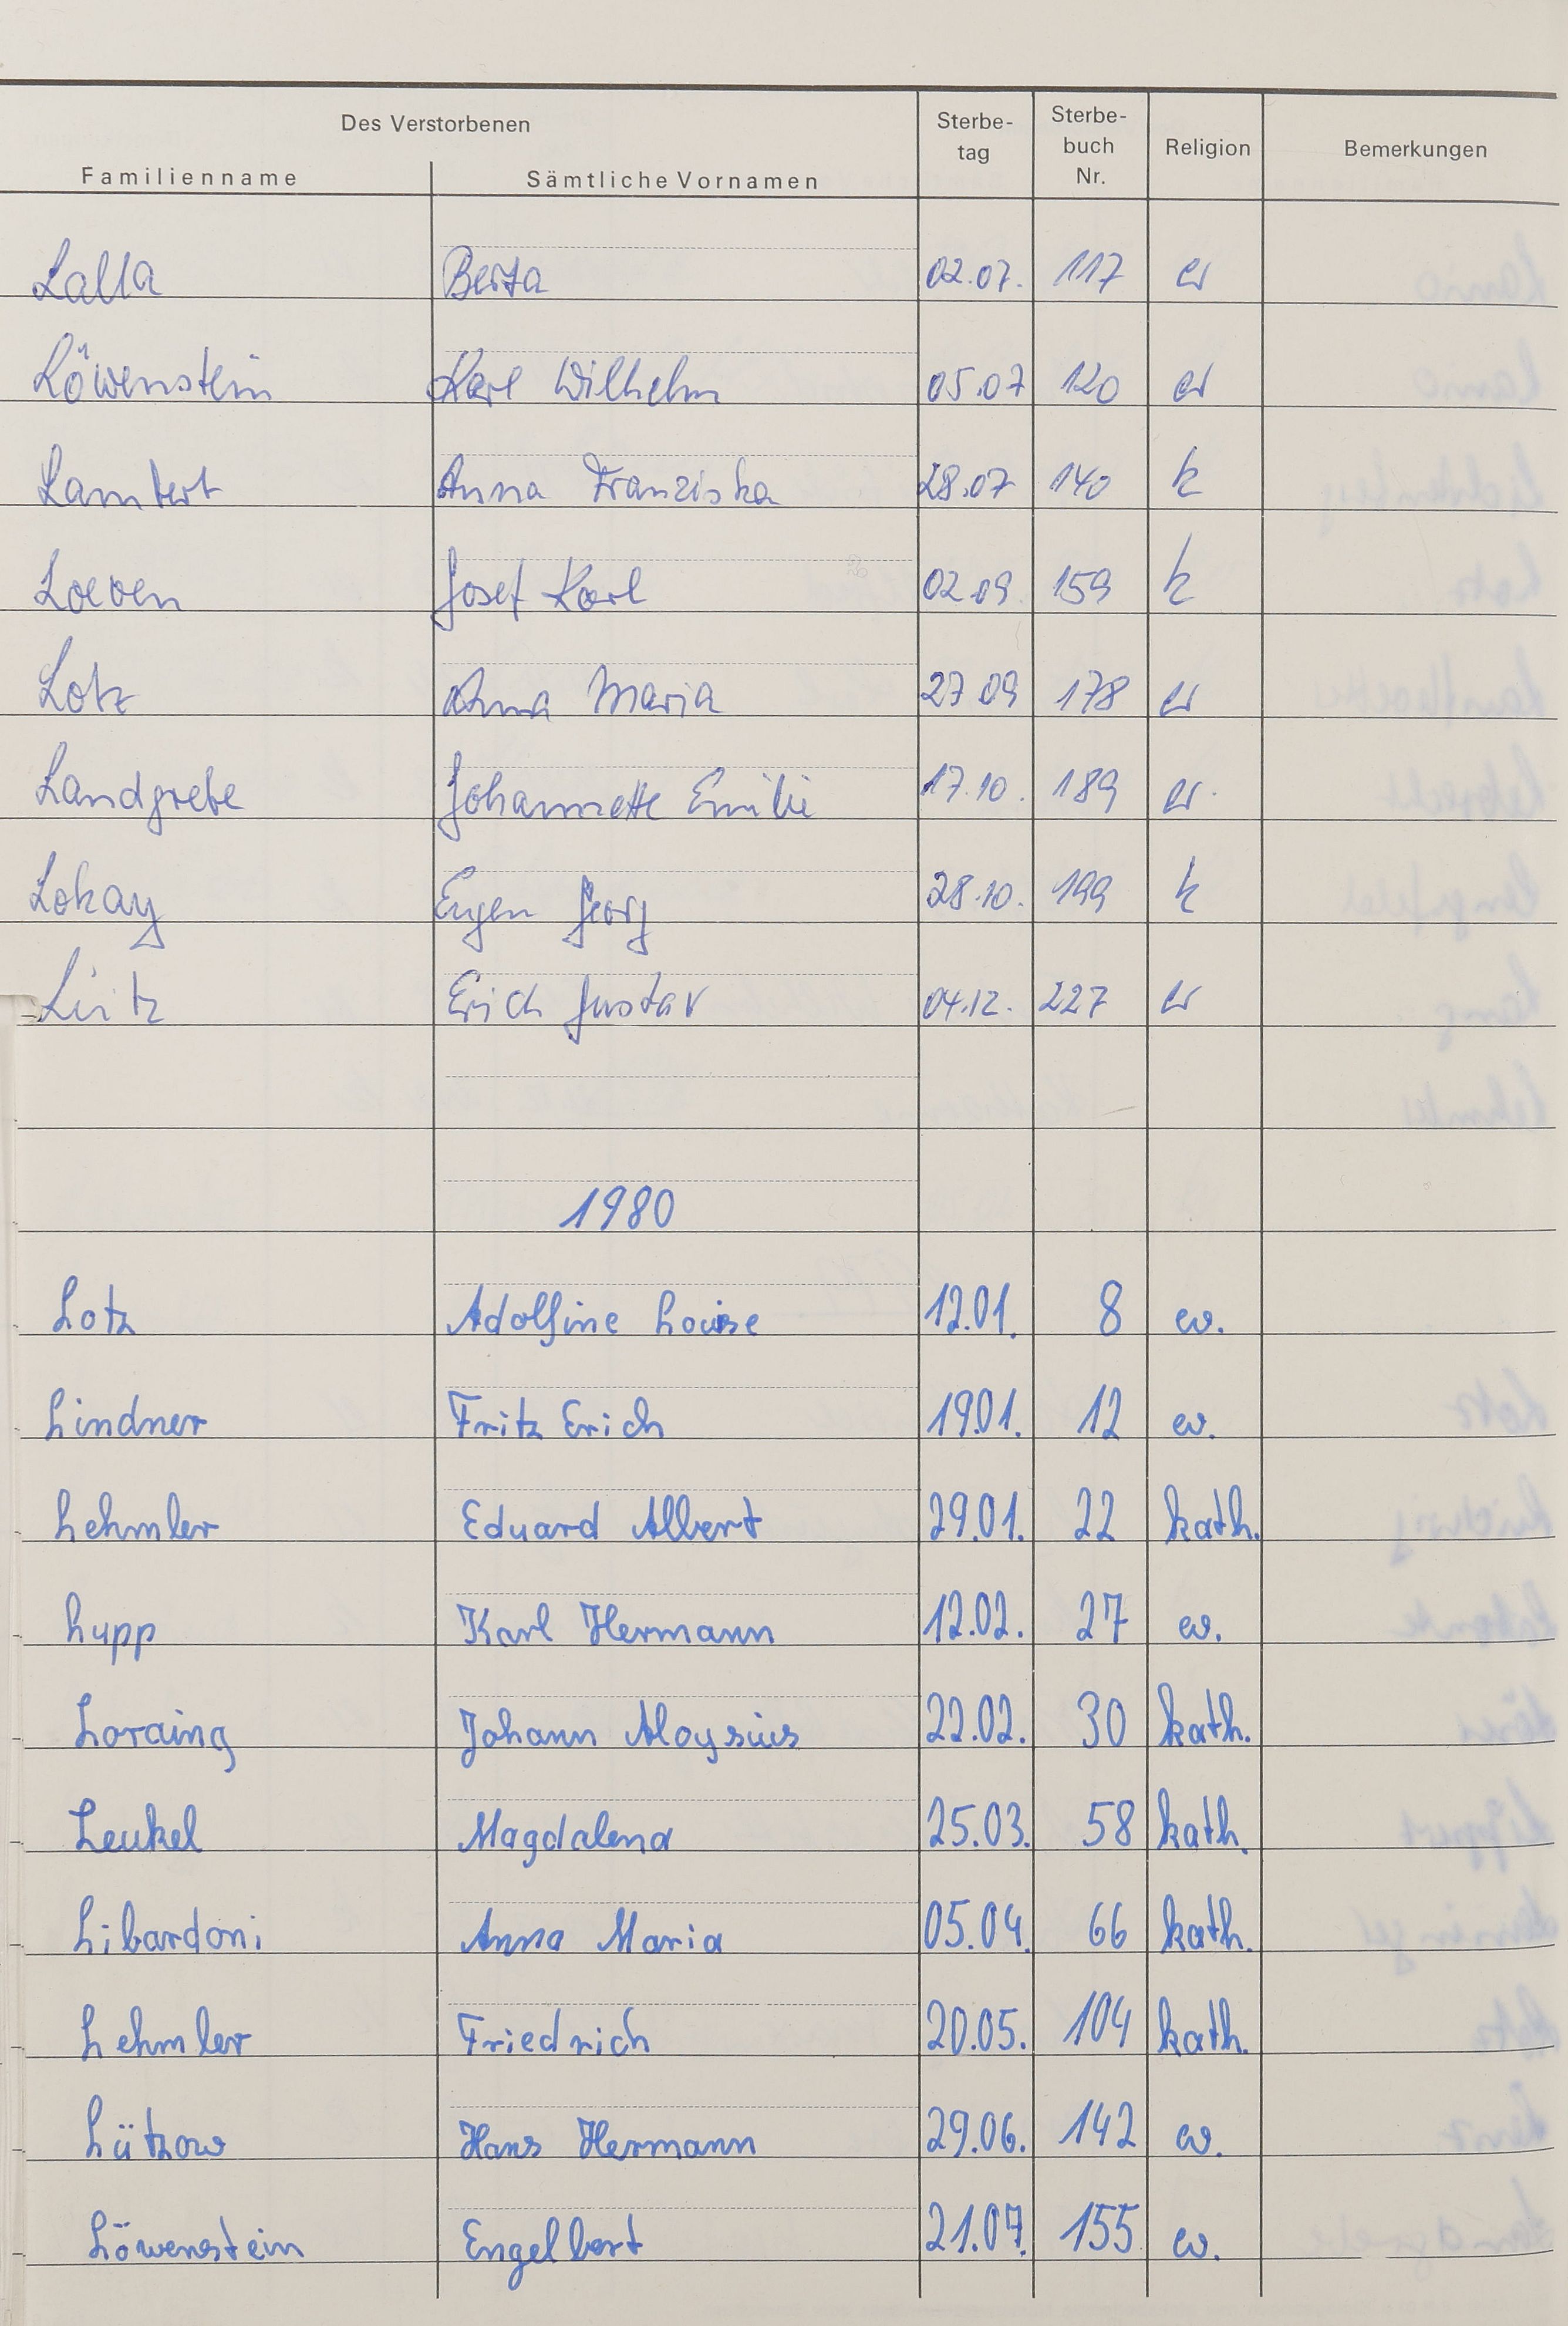 Des Verstorbenen
Familienname Sämtliche Vornamen Sterbe-tag Sterbe-buch Nr. Religion Bemerkungen
Lalla Berta 02.07. 117 ev
Löwenstein Karl Wilhelm 05.07 120 ev
Lambert Anna Franziska 28.07 140 k
Loeven Josef Karl 02.09. 159 k
Lotz Anna Maria 27.09 178 ev
Landgrebe Johannette Emilie 17.10. 189 ev.
Lokay Eugen Georg 28.10. 199 k
Erich Gustav 04.12. 227 ev
1980
Lotz Adolfine Louise 12.01. 8 ev.
Lindner Fritz Erich 19.01. 12 ev.
Lehmler Eduard Albert 29.01. 22 kath.
Lupp Karl Hermann 12.02. 27 ev.
Loraing Johann Aloysius 22.02. 30 kath.
Leukel Magdalena 25.03. 58 kath.
Libardoni Anna Maria 05.04. 66 kath.
Lehmler Friedrich 20.05. 104 kath.
Lützow Hans Hermann 29.06. 142 ev.
Löwenstein Engelbert 21.07. 155 ev.